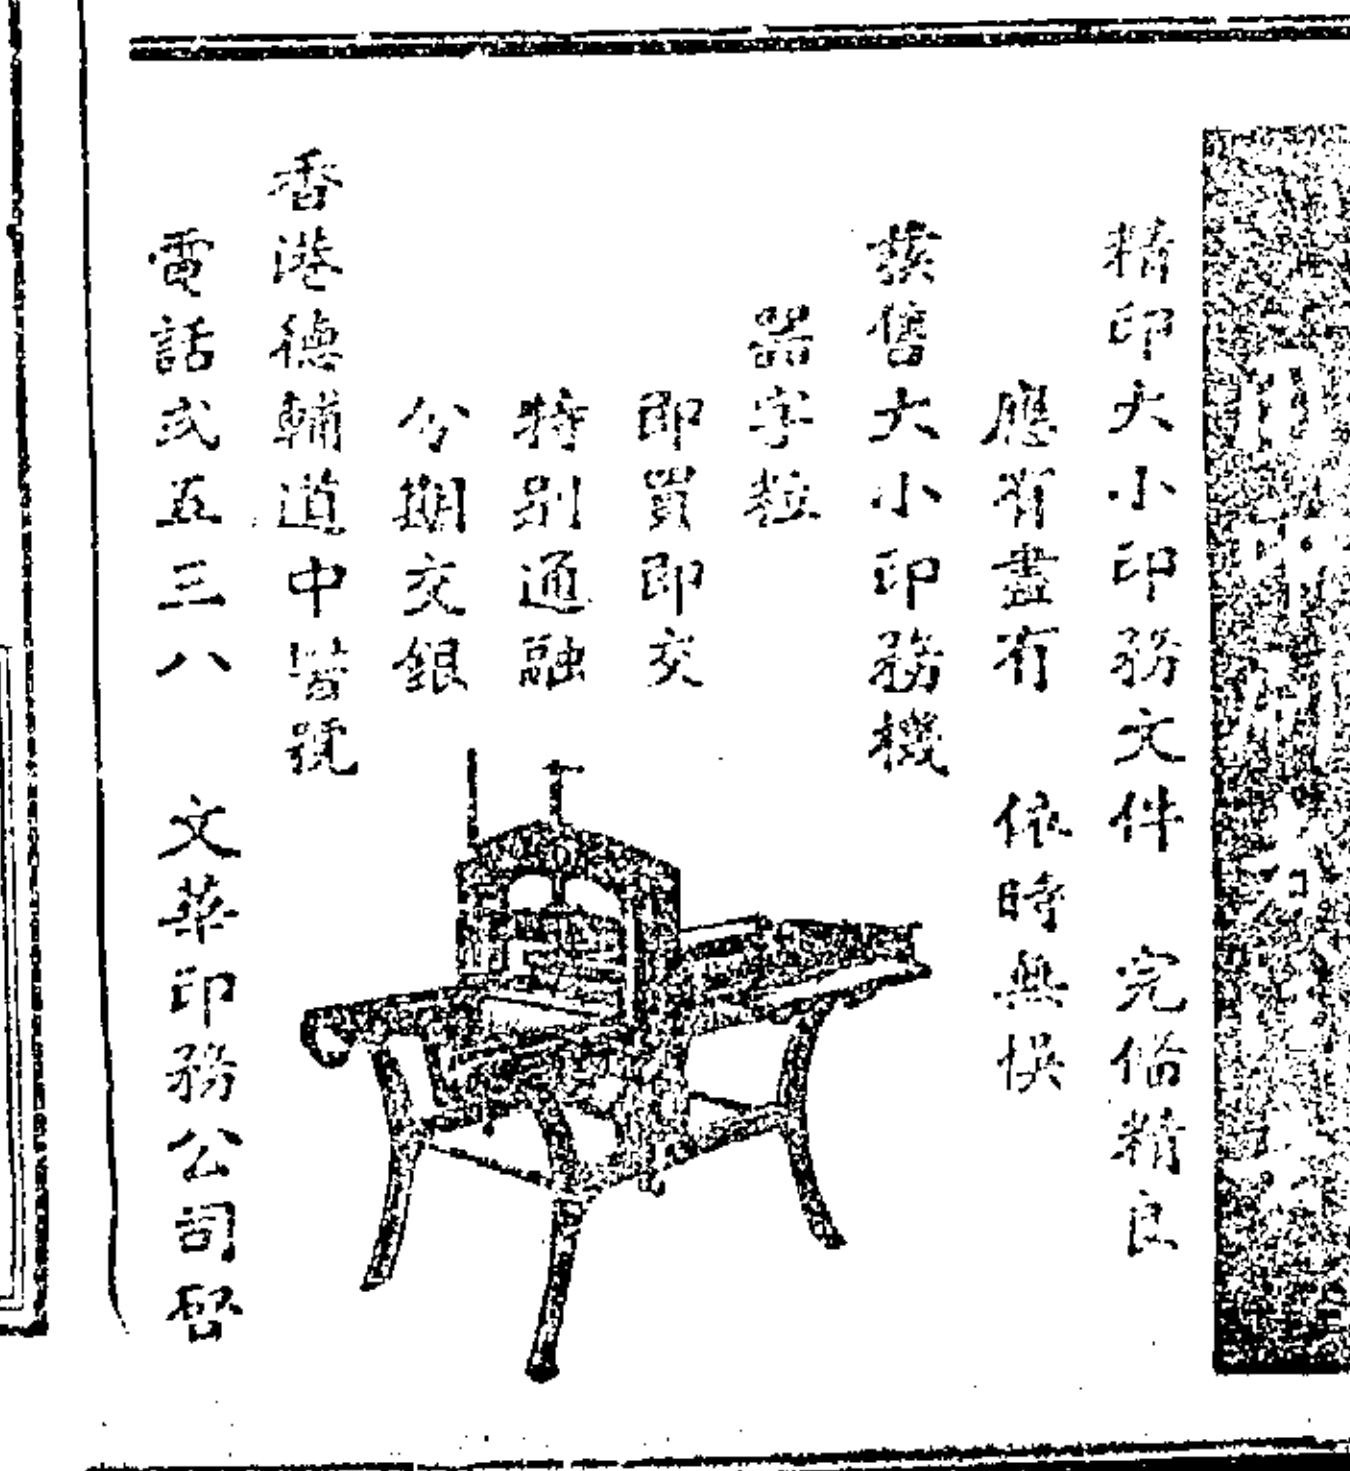 精印大小印務文件 完備精良
應有盡有 依時無悞
發售大小印務機
器字粒
即買即交
特別通融
分期交銀
香港德輔道中 號
電話弍五三八 文華印務公司啓